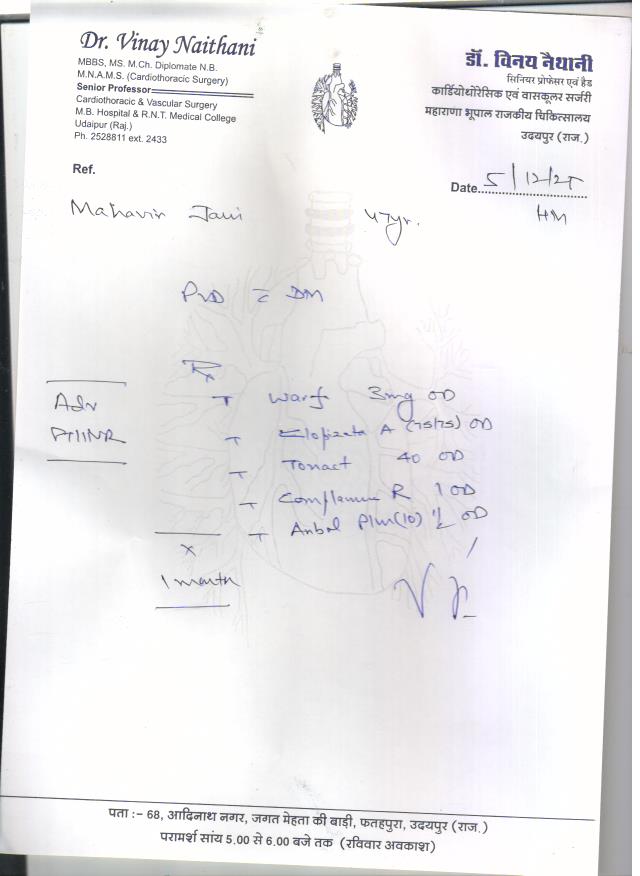 Dr. Vinay Naithani
MBBS, MS. M.Ch. Diplomate N.B.
M.N.A.M.S. (Cardiothoracic Surgery)
Senior Professor
Cardiothoracic & Vascular Surgery
M.B. Hospital & R.N.T. Medical College
Udaipur (Raj.)
Ph. 2528811 ext. 2433
डॉ. विनय नैथानी
सिनियर प्रोफेसर एवं हैड
कार्डियोथोरेसिक एवं वासकूलर सर्जरी
महाराणा भूपाल राजकीय चिकित्सालय
उदयपुर (राज.)
Ref.
Date 5/12/25
HM
Mahavir 47yr.
PVD DM
Rx
Adv
PT/INR
T Warf 3mg OD
T Clopizeta A (75/75) OD
T Tonact 40 OD
T Complamina R 1 OD
T Plus (10) 1/2 OD
x
1 month
पता :- 68, आदिनाथ नगर, जगत मेहता की बाड़ी, फतहपुरा, उदयपुर (राज.)
परामर्श सांय 5.00 से 6.00 बजे तक (रविवार अवकाश)